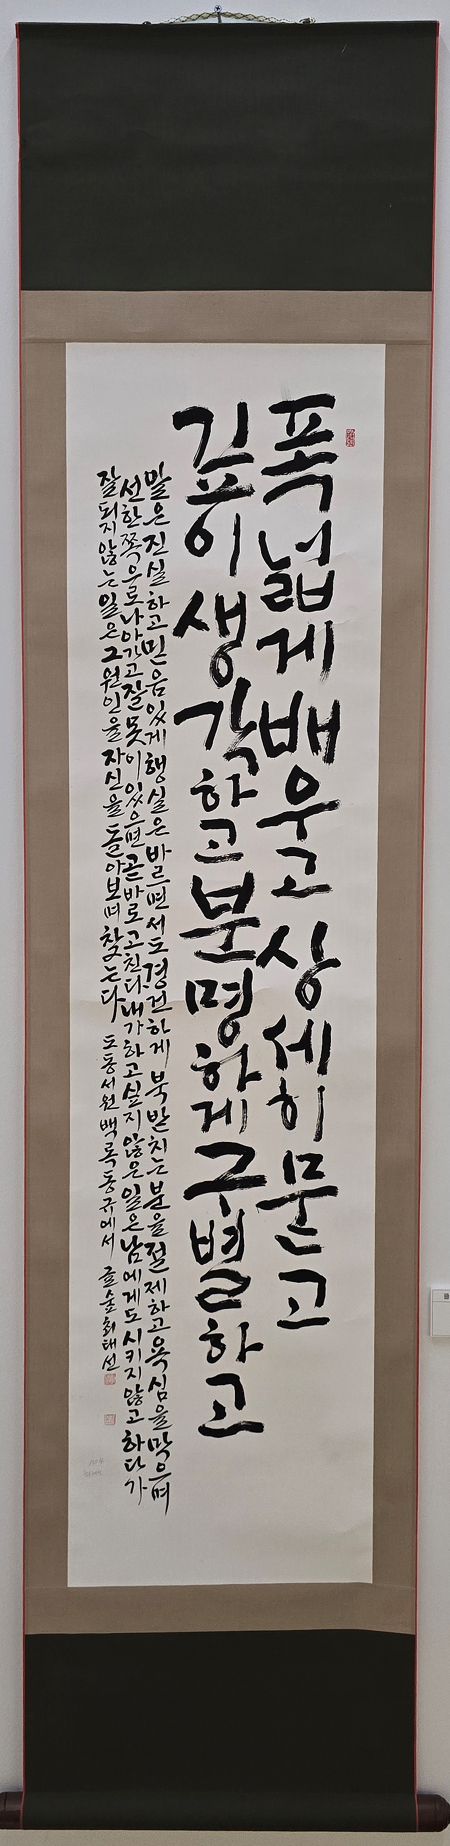 폭넓게배우고상세히묻고
깊이생각하고분명하게구별하고
말은진실하고믿음있게행실은바르면서도경건하게북받치는분을절제하고욕심을막으며
선한쪽으로나아가고잘못이있으면곧바로고친다내가하고싶지않은일은남에게도시키지않고하다가
잘되지않는일은그원인을자신을돌아보며찾는다 도동서원백록동규에서 글숲최태선